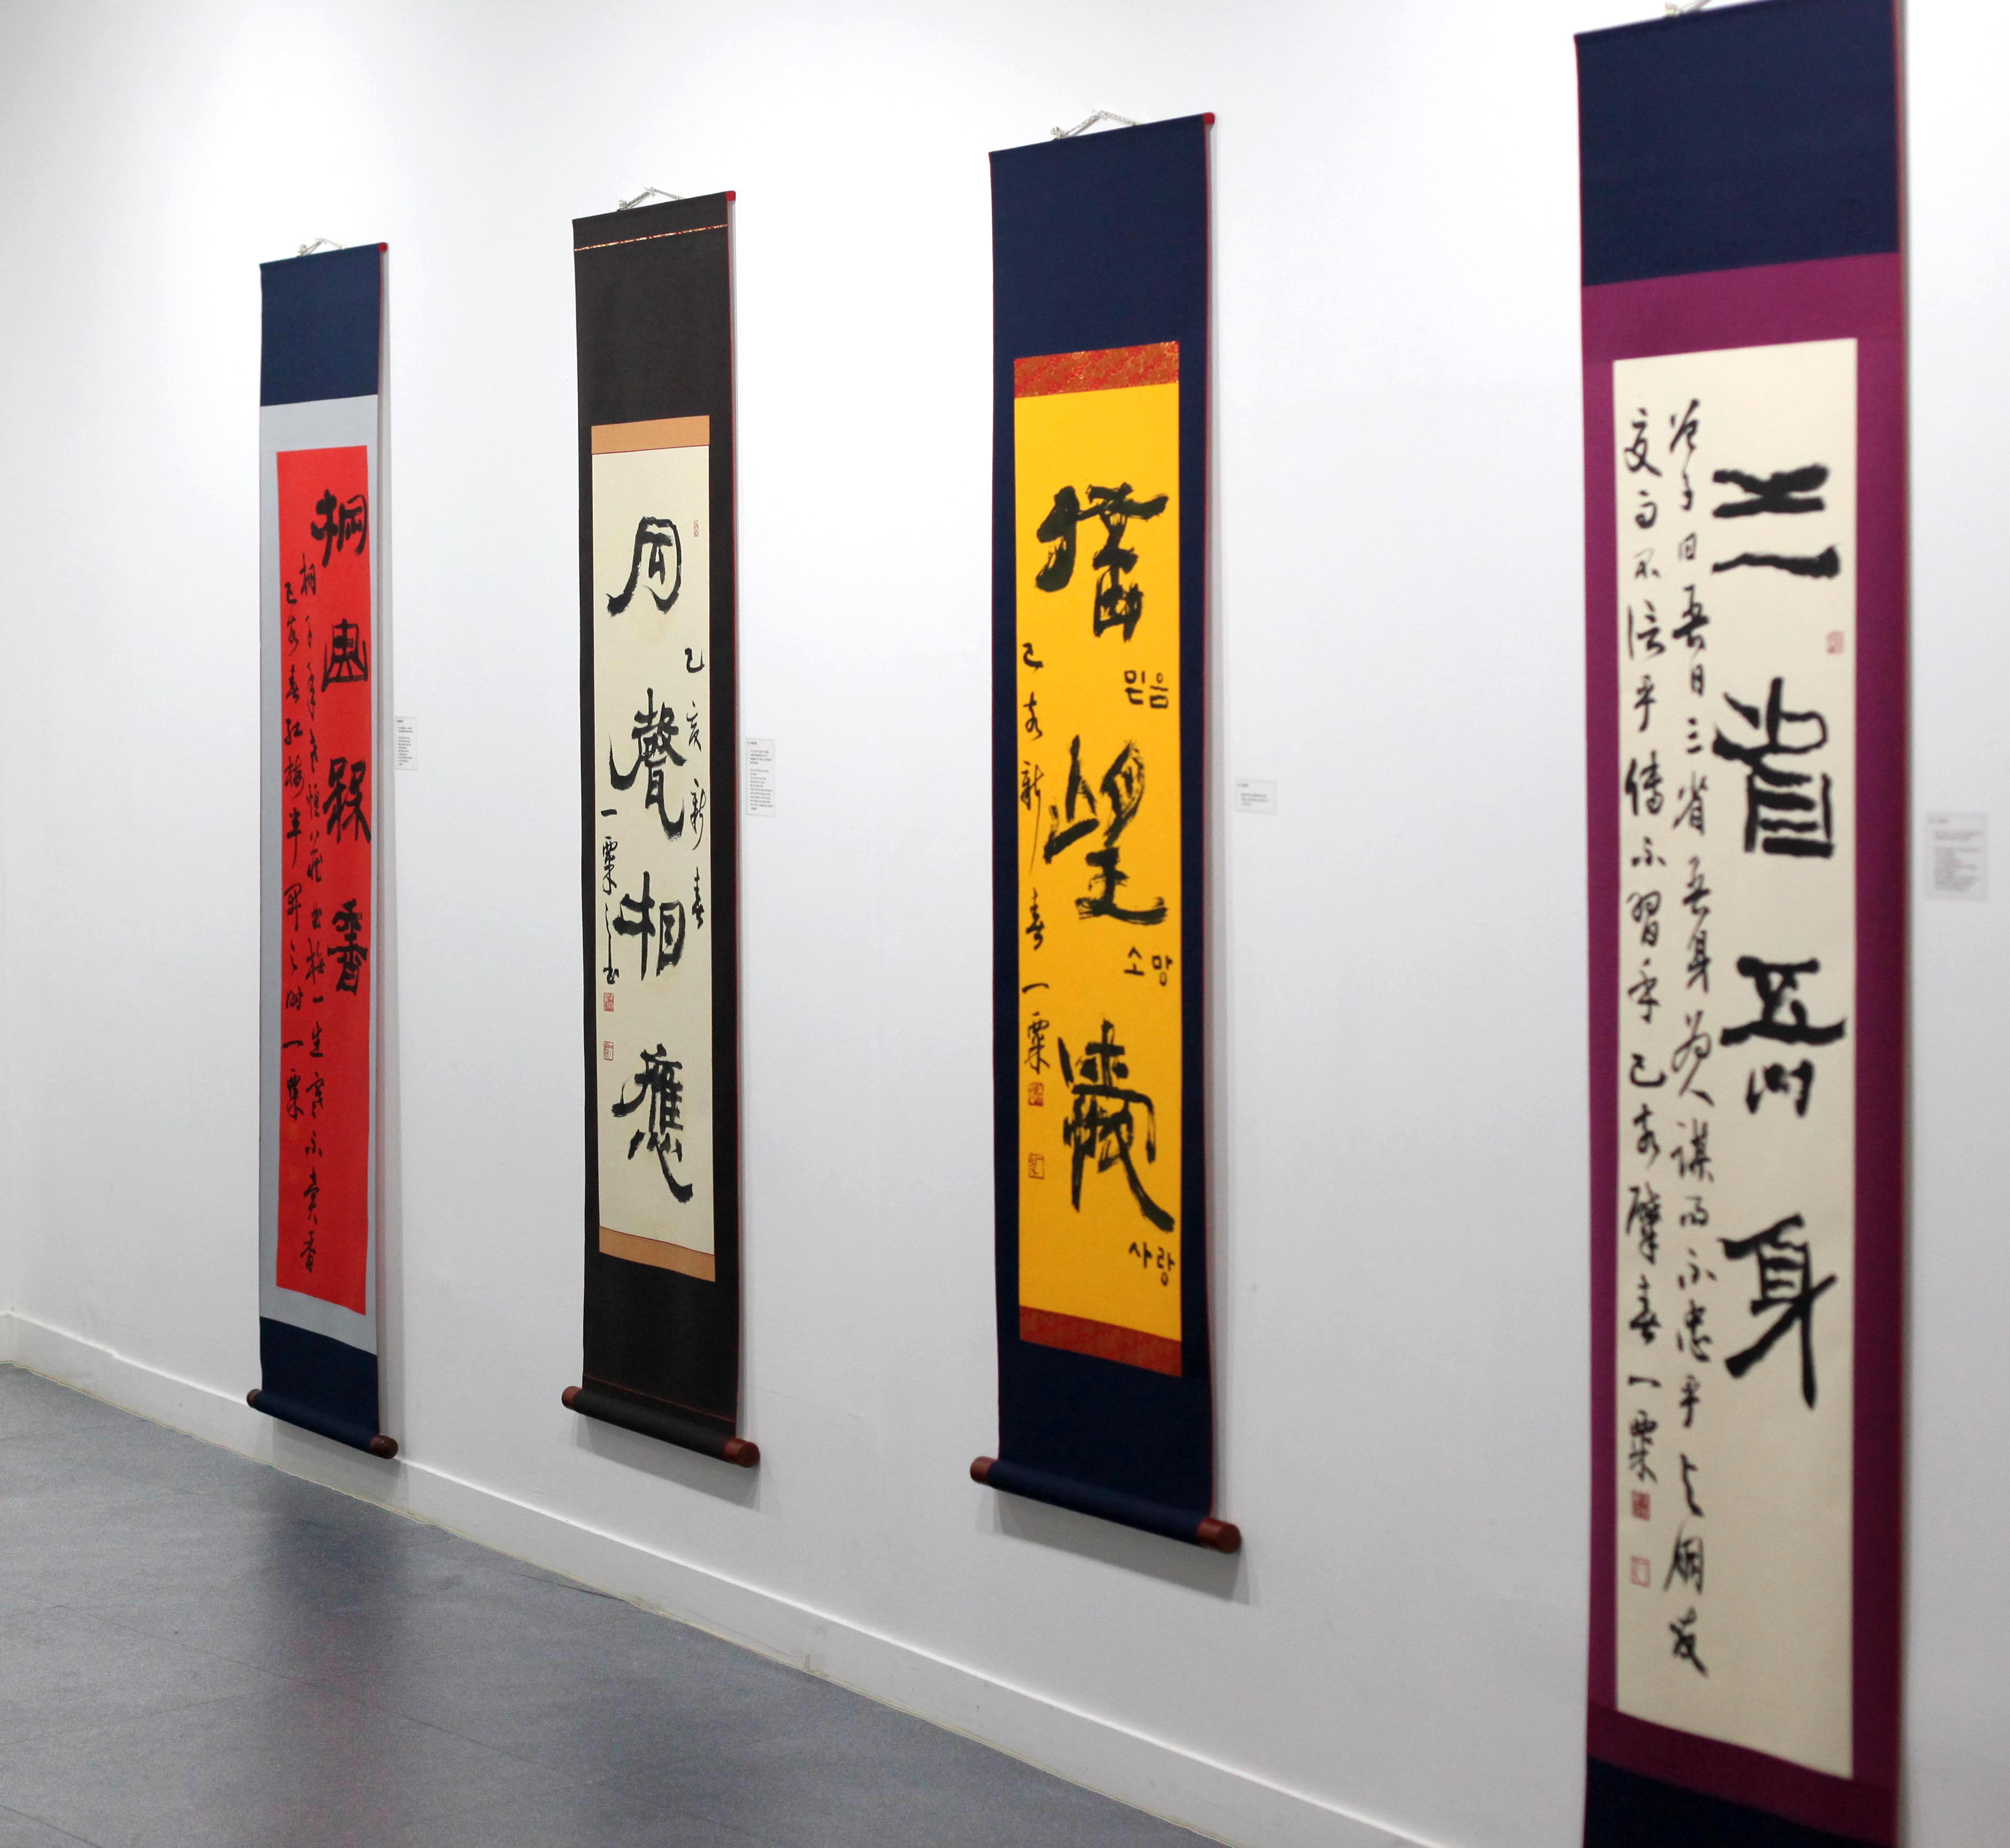 三省吾身
曾子曰吾日三省吾身为人謀而不忠乎与朋友
交而不信乎傳不習乎己亥肇春一粟
望
믿음
소망
사랑
己亥新春一粟
同聲相應
己亥新春
一粟
桐曲槑香
桐千年老恒藏曲梅一生寒不賣香
己亥春紅梅半開之時一粟